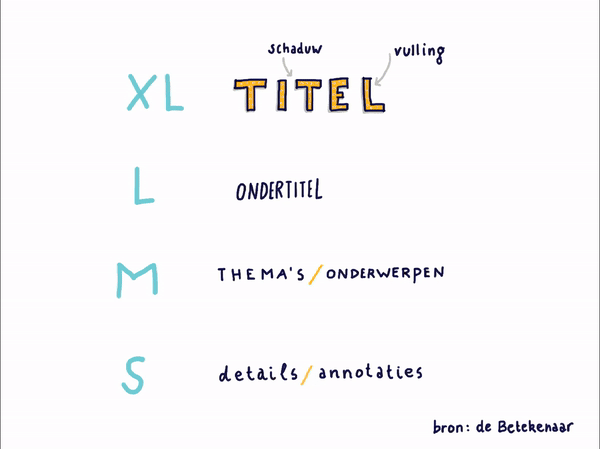 schaduw vulling
XL TITEL
L ONDERTITEL
M THEMA'S/ONDERWERPEN
S details/annotaties
bron: de Betekenaar